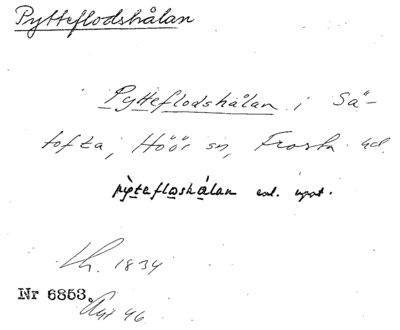 Pytteflodshålan
Pytteflodshålan i Sä-
tofta, Höör sn, Frosta hd.
pỳtaflɷshålan enl. uppt.
Lh. 1834
Nr 6853.
46